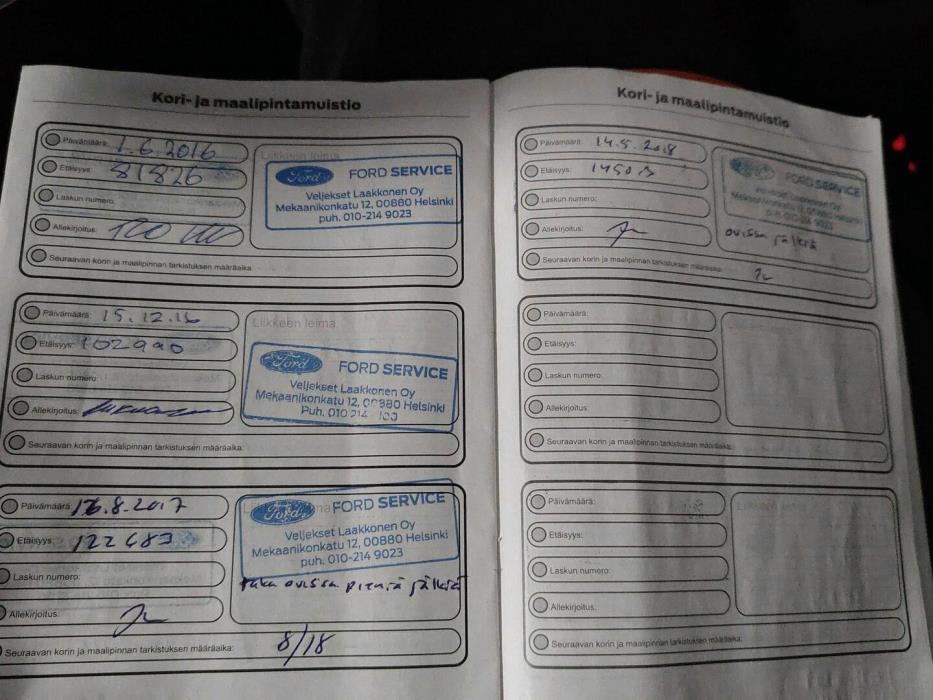 Kori- ja maalipintamuistio
Päivämäärä: 1.6.2016
Etäisyys: 81826
Laskun numero:
Allekirjoitus:
Seuraavan korin ja maalipinnan tarkistuksen määräaika
Liikkeen leima
Ford FORD SERVICE
Veljekset Laakkonen Oy
Mekaanikonkatu 12, 00880 Helsinki
puh. 010-214 9023
Päivämäärä: 15.12.16
Etäisyys: 102990
Laskun numero:
Allekirjoitus:
Seuraavan korin ja maalipinnan tarkistuksen määräaika:
Liikkeen leima
Ford FORD SERVICE
Veljekset Laakkonen Oy
Mekaanikonkatu 12, 00880 Helsinki
Puh. 010 214
Päivämäärä: 16.8.2017
Etäisyys: 122683
Laskun numero:
Allekirjoitus:
Seuraavan korin ja maalipinnan tarkistuksen määräaika: 8/18
Ford FORD SERVICE
Veljekset Laakkonen Oy
Mekaanikonkatu 12, 00880 Helsinki
puh. 010-214 9023
taka ovissa pieniä jälkiä
Kori- ja maalipintamuistio
Päivämäärä: 14.5.2018
Etäisyys:
Laskun numero:
Allekirjoitus:
Seuraavan korin ja maalipinnan tarkistuksen määräaika:
FORD SERVICE
Veljekset Laakkonen Oy
Mekaanikonkatu 12, 00880 Helsinki
puh. 010-214 9023
ovissa jälkiä
Päivämäärä:
Etäisyys:
Laskun numero:
Allekirjoitus:
Seuraavan korin ja maalipinnan tarkistuksen määräaika:
Päivämäärä:
Etäisyys:
Laskun numero:
Allekirjoitus:
Seuraavan korin ja maalipinnan tarkistuksen määräaika: